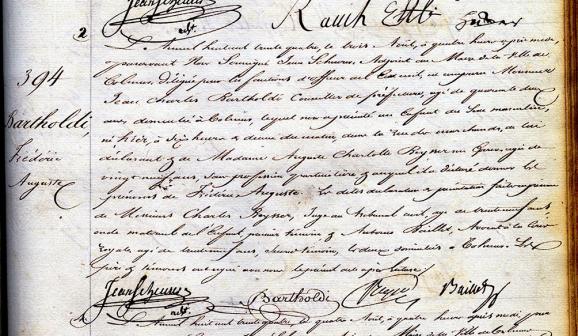 Jean Scheurer
adjt.
Rauch
2
394
Bartholdi,
Frédéric
Auguste
L'an mil huit cent trente quatre, le trois Août, à quatre heures après midi,
pardevant Nous Jean Scheurer, Adjoint au Maire de la Ville de
Colmar, délégué pour les fonctions d'officier de l'Etat civil, est comparu Monsieur
Jean Charles Bartholdi Conseiller de préfecture, agé de quarante deux
ans, domicilié à Colmar, lequel nous a présenté un Enfant du Sexe masculin,
né hier, à six heures & demie du matin, dans la rue des marchands, de lui
déclarant & de Madame Auguste Charlotte Beysser sa Epouse, agée de
vingt neuf ans, sans profession particulière & auquel il a déclaré donner les
prénoms de Frédéric Auguste. Les dites déclaration & présentation faites en présence
de Messieurs Charles Beysser, Juge au tribunal civil, agé de trente neuf ans,
oncle maternel de l'Enfant, premier témoin & Antoine Baillet, Avocat à la Cour
Royale, agé de trente neuf ans, second témoin, tous deux domiciliés à Colmar. Les
père & témoins ont signé avec nous le présent acte après lecture.
Jean Scheurer
adjt.
Bartholdi
Beysser
Baillet
L'an mil huit cent trente quatre, le quatre Août, à quatre heures après midi, par
Maire de la Ville de Colmar